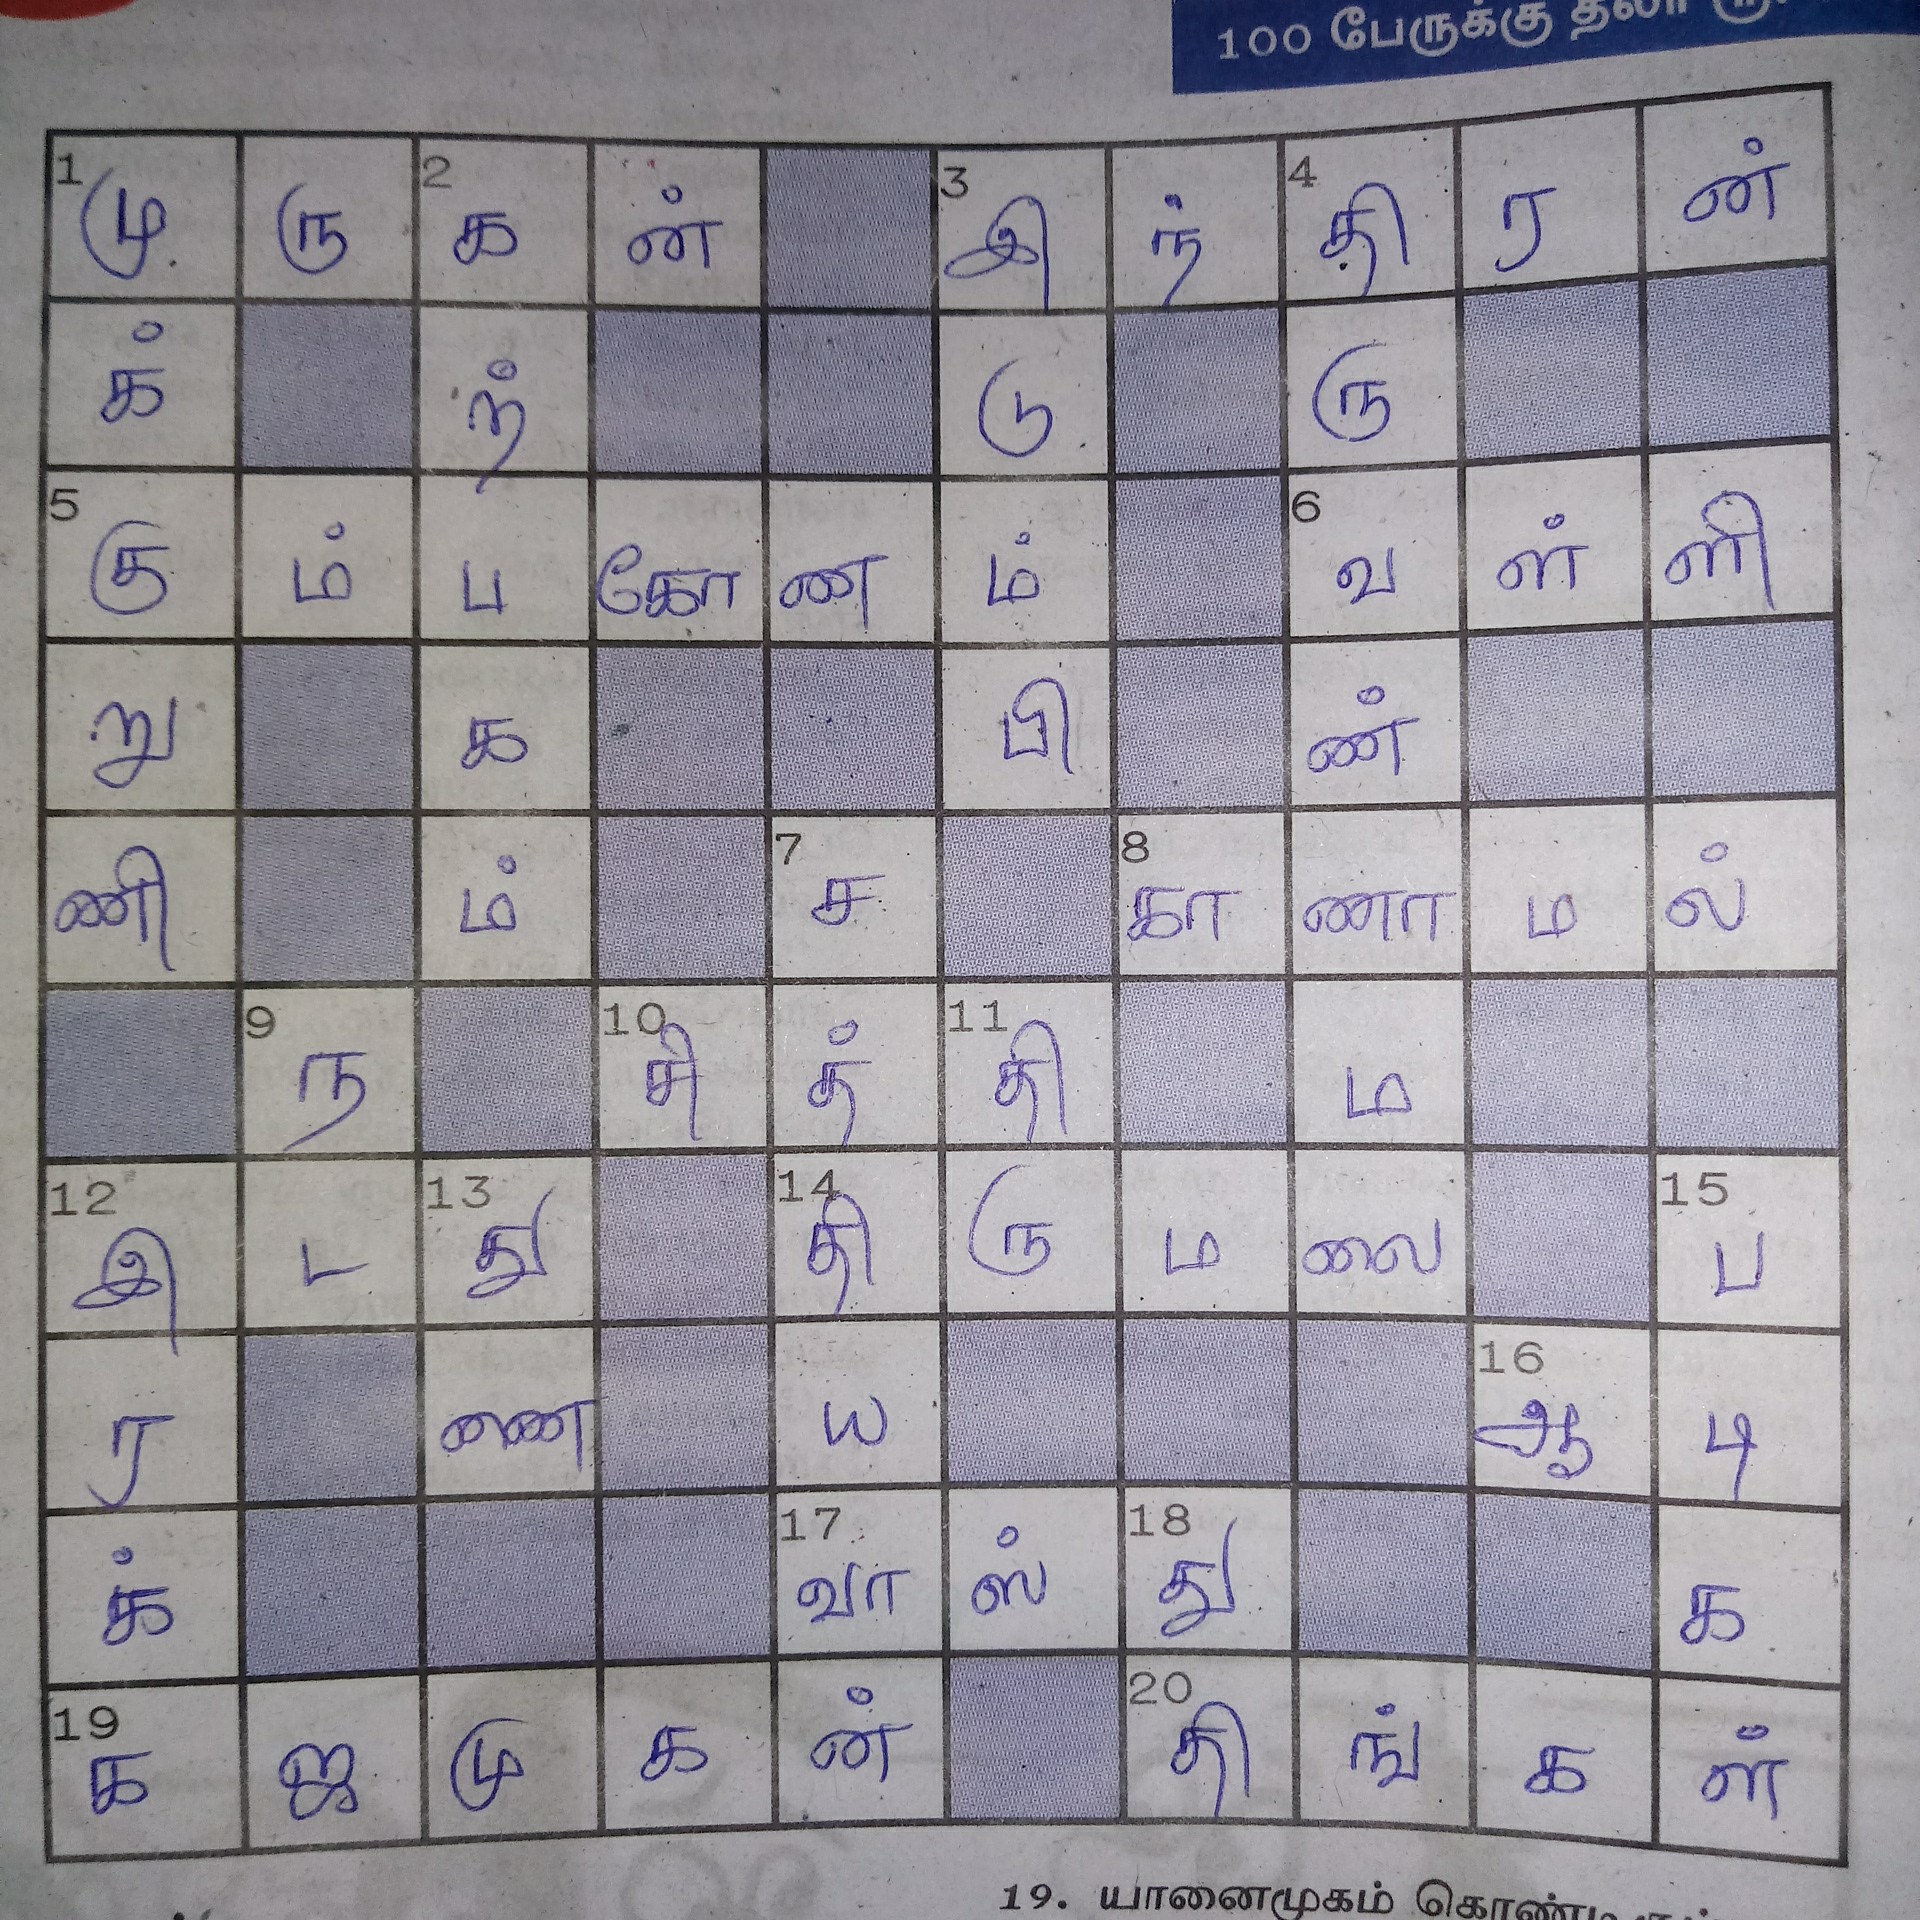 100 பேருக்கு தலா
1 மு ரு 2 க ன் 3 இ ந் 4 தி ர ன்
க் ற் டு ரு
5 கு ம் ப கோ ண ம் 6 வ ள் ளி
று க பி ண்
ணி ம் 7 ச 8 கா ணா ம ல்
9 ந 10 சி த் 11 தி ம
12 இ ட 13 து 14 தி ரு ம லை 15 ப
ர ணை ய 16 ஆ டி
க் 17 வா ஸ் 18 து க
19 க ஜ மு க ன் 20 தி ங் க ள்
19. யானைமுகம்